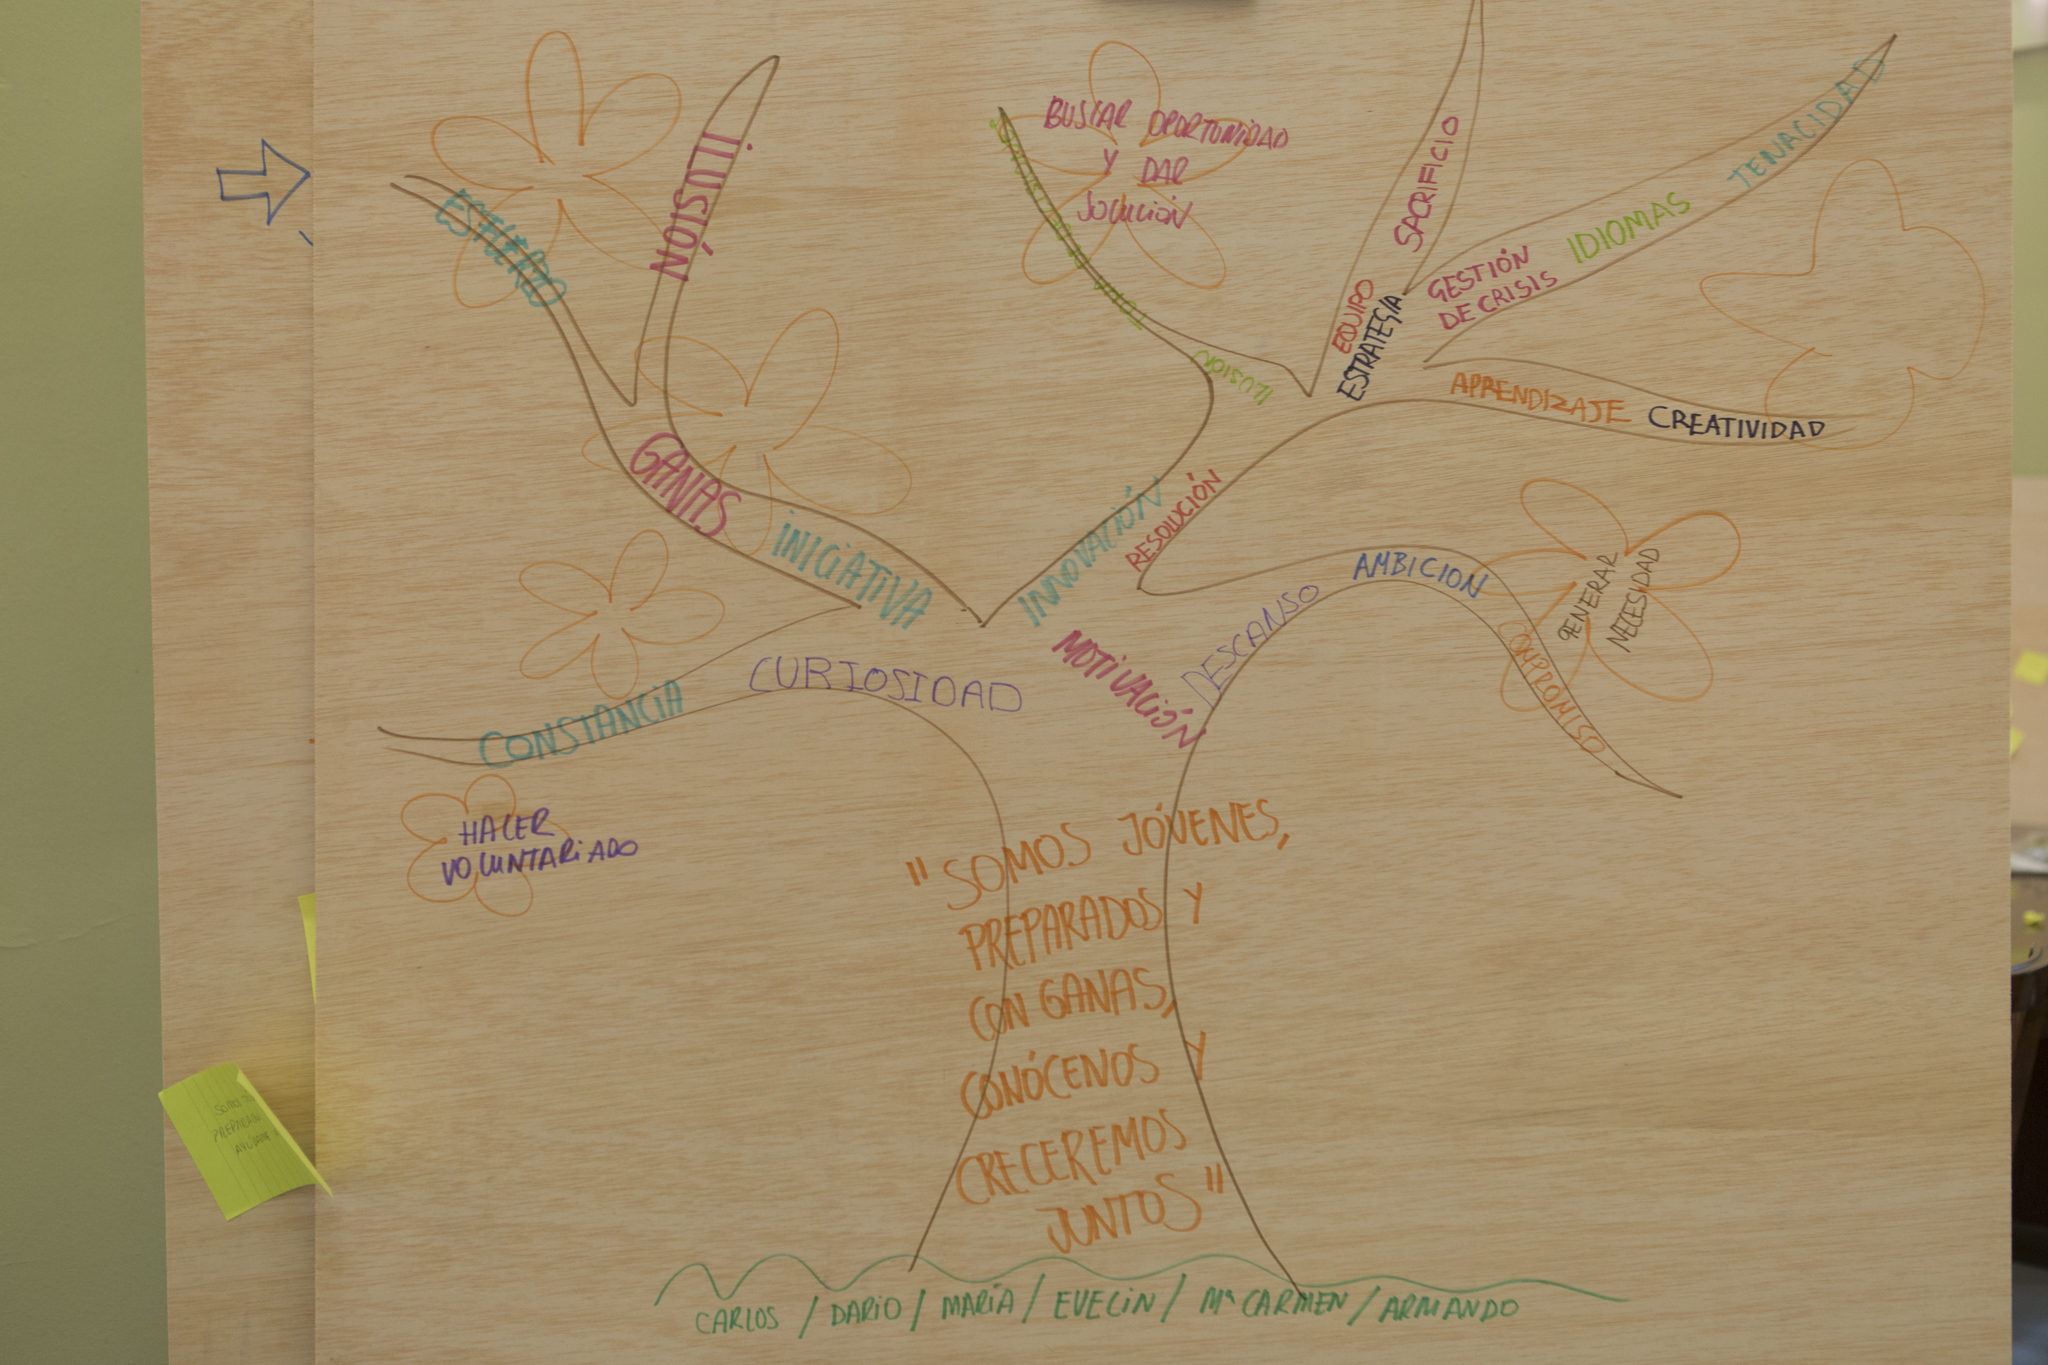 ESFUERZO
¡ILUSIÓN
GANAS
INICIATIVA
BUSCAR OPORTUNIDAD
Y DAR
SOLUCIÓN
ILUSION
EQUIPO
ESTRATEGIA
SACRIFICIO
GESTIÓN
DE CRISIS
IDIOMAS
TENACIDAD
APRENDIZAJE CREATIVIDAD
INNOVACIÓN
RESOLUCIÓN
MOTIVACIÓN
DESCANSO
AMBICION
COMPROMISO
GENERAR
NECESIDAD
CURIOSIDAD
CONSTANCIA
HACER
VOLUNTARIADO
"SOMOS JÓVENES,
PREPARADOS Y
CON GANAS,
CONÓCENOS Y
CRECEREMOS
JUNTOS"
CARLOS / DARIO / MARÍA / EVELIN / Mª CARMEN / ARMANDO